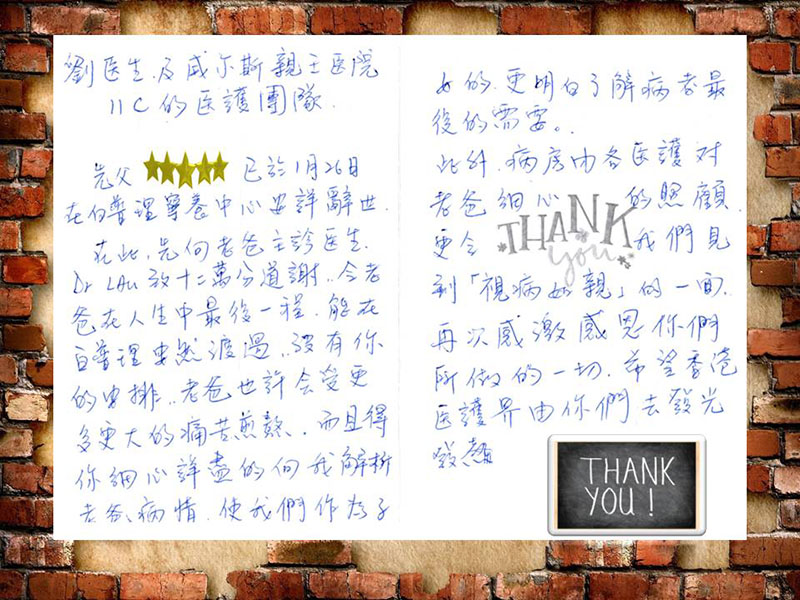 劉医生及威尔斯親王医院
11C的医護團隊.
先父 已於1月26日
在白普理寧養中心安詳辭世.
在此,先向老爸主診医生.
Dr LAU 致十二萬分道謝..令老
爸在人生中最後一程.能在
白普理安然渡過..沒有你
的安排..老爸也許会受更
多更大的痛苦煎熬.而且得
你細心詳盡的向我解析
老爸病情.使我們作為子
女的.更明白了解病者最
後的需要。.
此外.病房中各医護对
老爸細心 的照顧.
更令 我們見
到「視病如親」的一面.
THANK
you
再次感激感恩你們
所做的一切.希望香港
医護界由你們去發光
發熱
THANK
YOU!